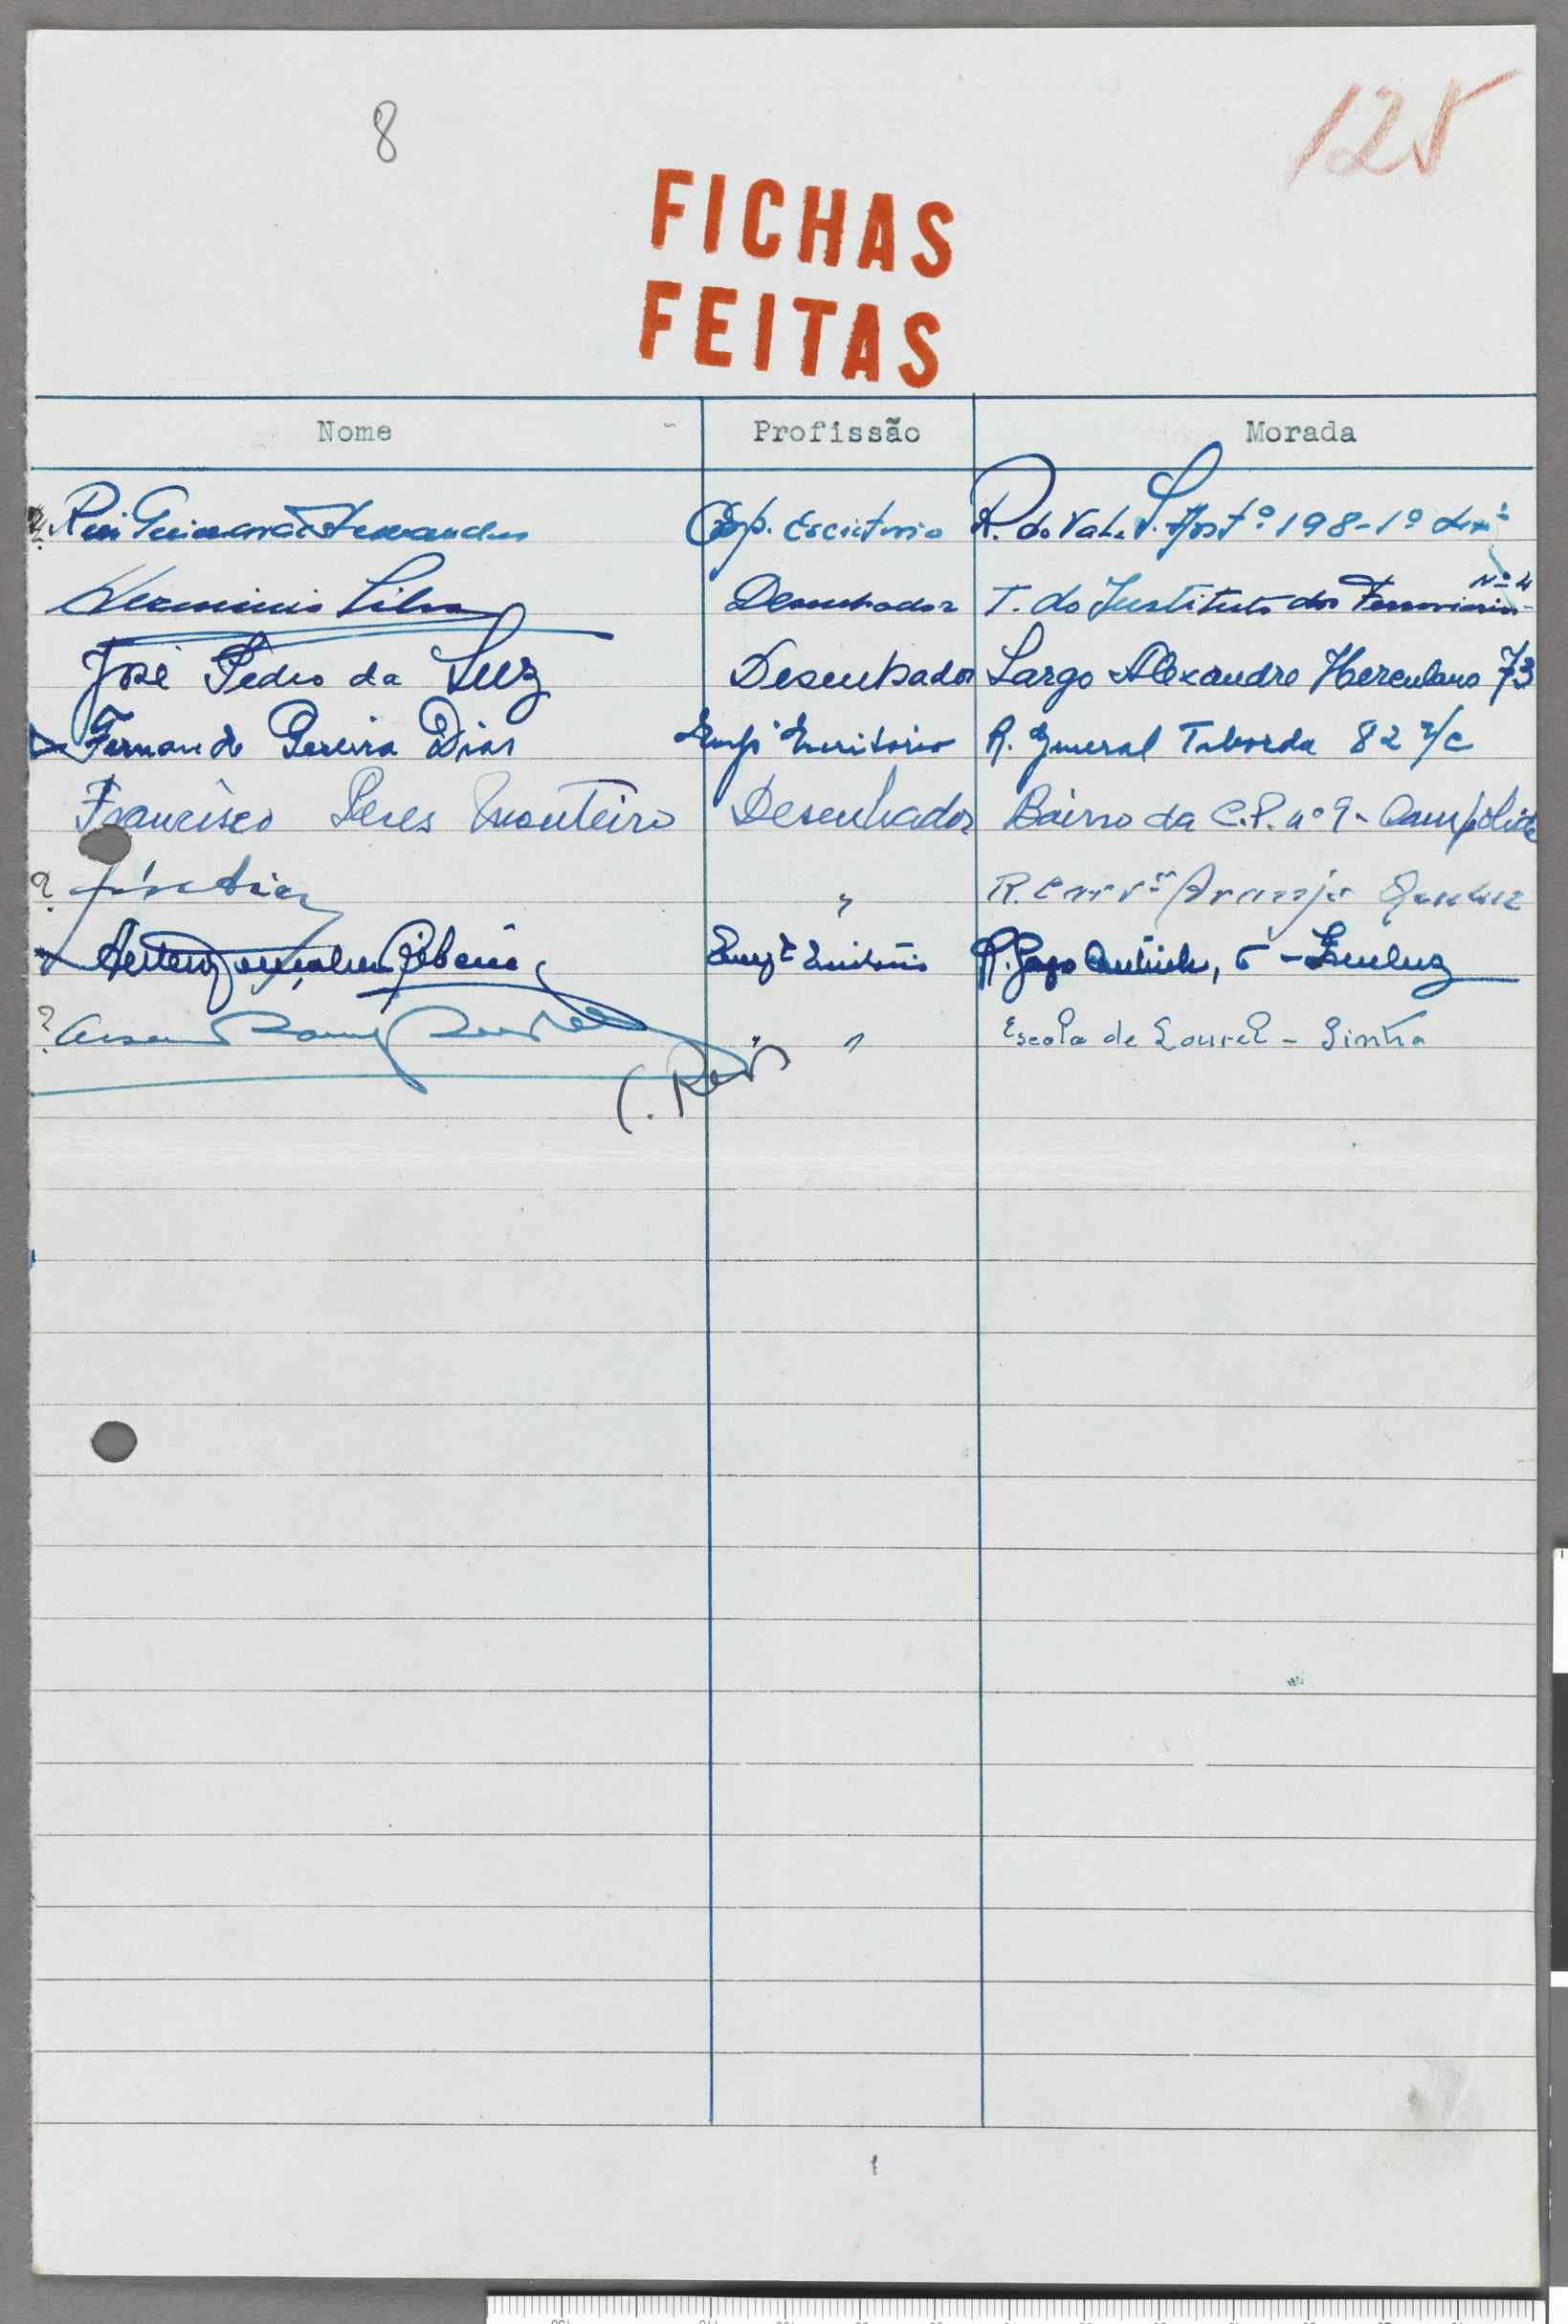 8
125
FICHAS
FEITAS
Nome Profissão Morada
? Rui Guimarães Fernandes Emp. Escritorio R. do Vale S. Antº 198-1º
Herminio Silva Desenhador T. do Instituto dos Ferroviarios Nº 4
José Pedro da Luz Desenhador Largo Alexandre Herculano 73
Fernando Pereira Dias Emp. Escritorio R. General Taborda 82 r/c
Francisco Peres Monteiro Desenhador Bairro da C.P. nº 9 - Campolide
? Dias " R. Araujo Queluz
Gonçalves Ribeiro Empº Escritório R. Gago Coutinho, 6 - Queluz
? " " Escola de Lourel - Sintra